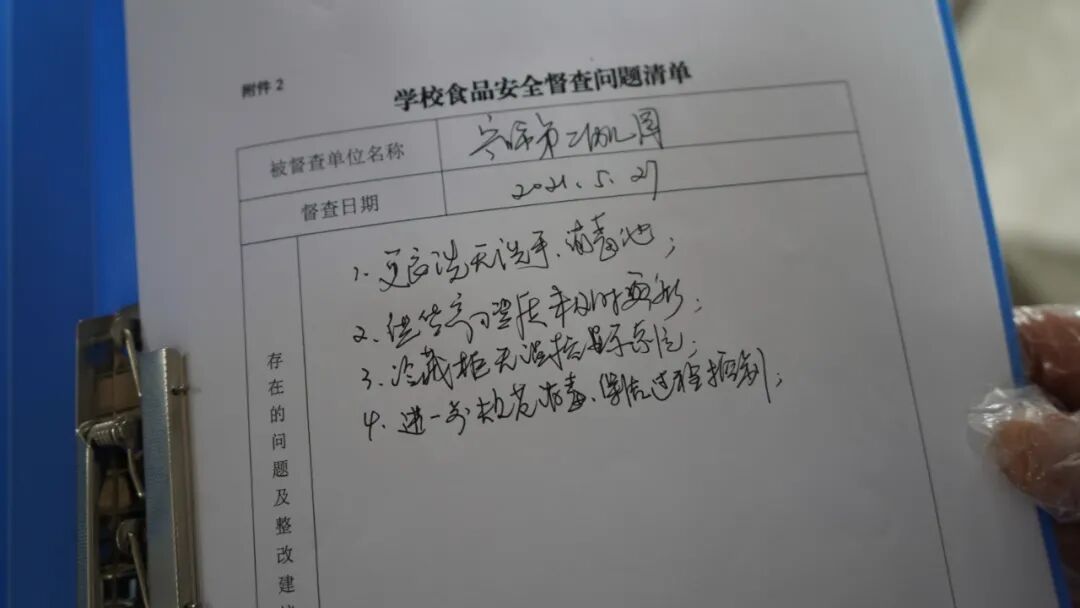 附件2
学校食品安全督查问题清单
被督查单位名称 第二幼儿园
督查日期 2021.5.27
1. 更衣洗无洗手、消毒池;
2. 供货商资质未及时更新;
3. 冷藏柜无温控显示系统;
4. 进一步规范消毒、保洁过程控制;
存在的问题及整改建